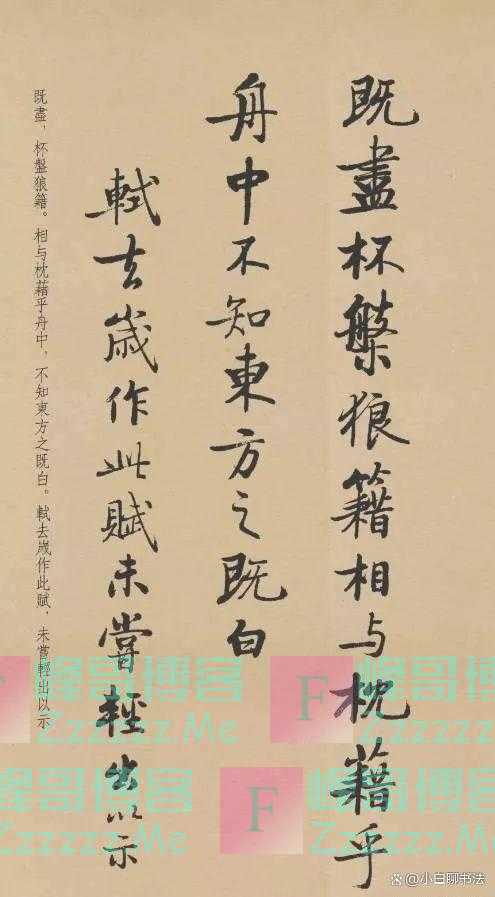 既盡杯槃狼籍相与枕藉乎
舟中不知東方之既白
軾去歲作此賦未嘗輕出以示
既盡，杯盤狼籍。相与枕藉乎舟中，不知東方之既白。軾去歲作此賦，未嘗輕出以示
峰哥博客
Zzzzzz.Me
F
峰哥博客
Zzzzzz
峰哥博客
Zzzzzz.Me
F
峰哥博客
Zzzzzz.Me
@小白聊书法